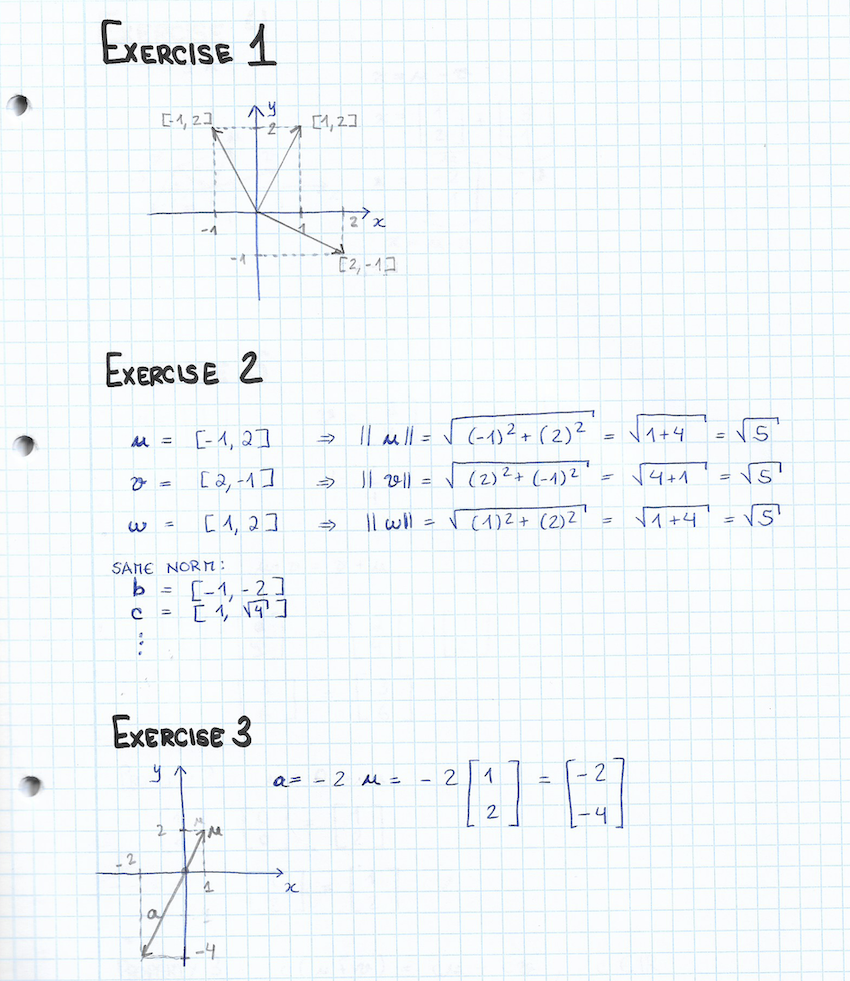 EXERCISE 1
y
[-1, 2] 2 [1, 2]
-1 1 2 x
-1 [2, -1]
EXERCISE 2
u = [-1, 2] ⇒ ||u|| = √((-1)² + (2)²) = √(1+4) = √5
v = [2, -1] ⇒ ||v|| = √((2)² + (-1)²) = √(4+1) = √5
w = [1, 2] ⇒ ||w|| = √((1)² + (2)²) = √(1+4) = √5
SAME NORM:
b = [-1, -2]
c = [1, √4]
⋮
EXERCISE 3
y
a = -2 u = -2 [1 2] = [-2 -4]
2 u
-2 1 x
a
-4